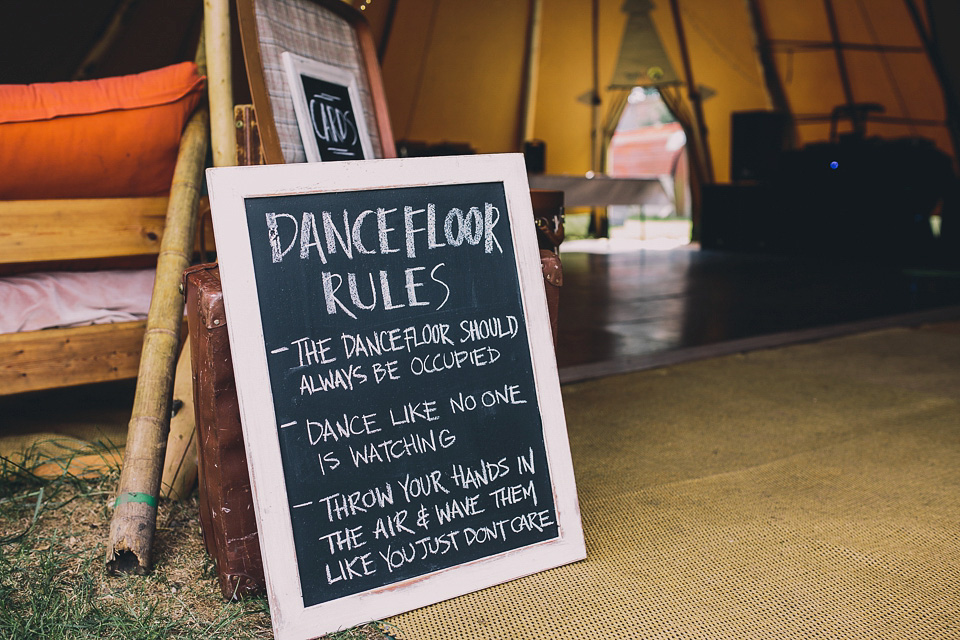 CARDS
DANCEFLOOR
RULES
- THE DANCEFLOOR SHOULD
ALWAYS BE OCCUPIED
- DANCE LIKE NO ONE
IS WATCHING
- THROW YOUR HANDS IN
THE AIR & WAVE THEM
LIKE YOU JUST DONT CARE